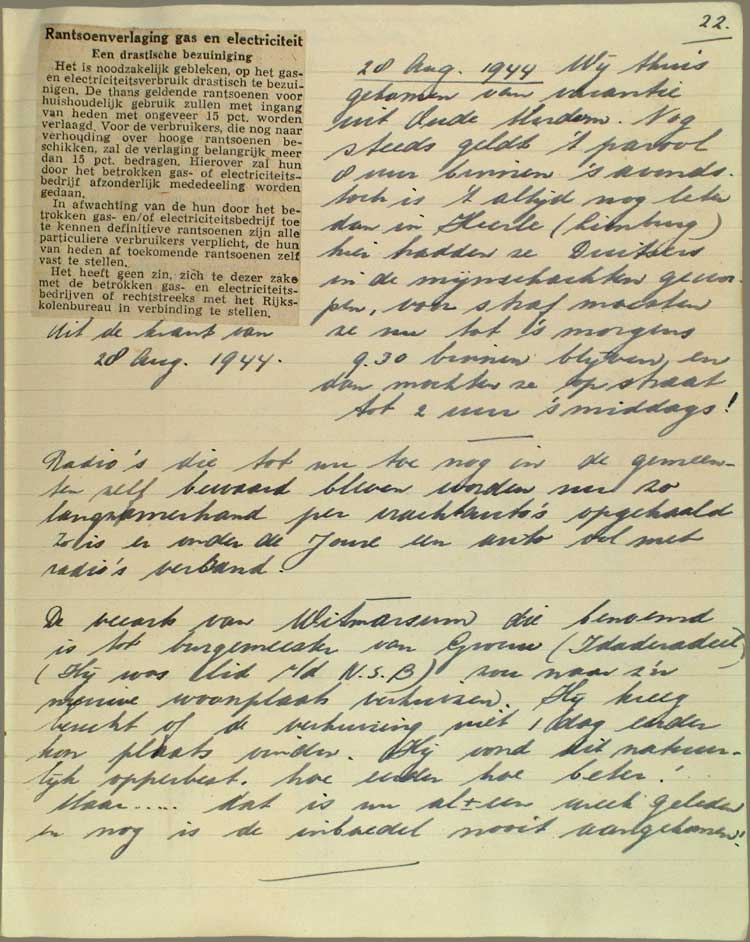 22.
Rantsoenverlaging gas en electriciteit
Een drastische bezuiniging
Het is noodzakelijk gebleken, op het gas-
en electriciteitsverbruik drastisch te bezui-
nigen. De thans geldende rantsoenen voor
huishoudelijk gebruik zullen met ingang
van heden met ongeveer 15 pct. worden
verlaagd. Voor de verbruikers, die nog naar
verhouding over hooge rantsoenen be-
schikken, zal de verlaging belangrijk meer
dan 15 pct. bedragen. Hierover zal hun
door het betrokken gas- of electriciteits-
bedrijf afzonderlijk mededeeling worden
gedaan.
In afwachting van de hun door het be-
trokken gas- en/of electriciteitsbedrijf toe
te kennen definitieve rantsoenen zijn alle
particuliere verbruikers verplicht, de hun
van heden af toekomende rantsoenen zelf
vast te stellen.
Het heeft geen zin, zich te dezer zake
met de betrokken gas- en electriciteits-
bedrijven of rechtstreeks met het Rijks-
kolenbureau in verbinding te stellen.
Uit de krant van
28 Aug. 1944.
28 Aug. 1944 Wij thuis
gekomen van vacantie
uit Oude Mirdum. Nog
steeds geldt 't parool
8 uur binnen 's avonds.
toch is 't altijd nog beter
dan in Heerle (Limburg)
hier hadden ze Duitsers
in de mijnschachten gewor-
pen, voor straf moesten
ze nu tot 's morgens
9.30 binnen blijven, en
dan mochten ze op straat
tot 2 uur 's middags!
Radio's die tot nu toe nog in de gemeen-
ten zelf bewaard bleven worden nu zo
langzamerhand per vrachtauto's opgehaald
Zo is er onder de Joure een auto vol met
radio's verbrand.
De veearts van Witmarsum die benoemd
is tot burgemeester van Grouw (Idaderadeel)
(Hij was lid v/d N.S.B) zou naar z'n
nieuwe woonplaats verhuizen. Hij kreeg
bericht of de verhuizing niet 1 dag eerder
kon plaats vinden. Hij vond dit natuur-
lijk opperbest. hoe eerder hoe beter!
Maar..... dat is nu al ± een week geleden
en nog is de inboedel nooit aangekomen!